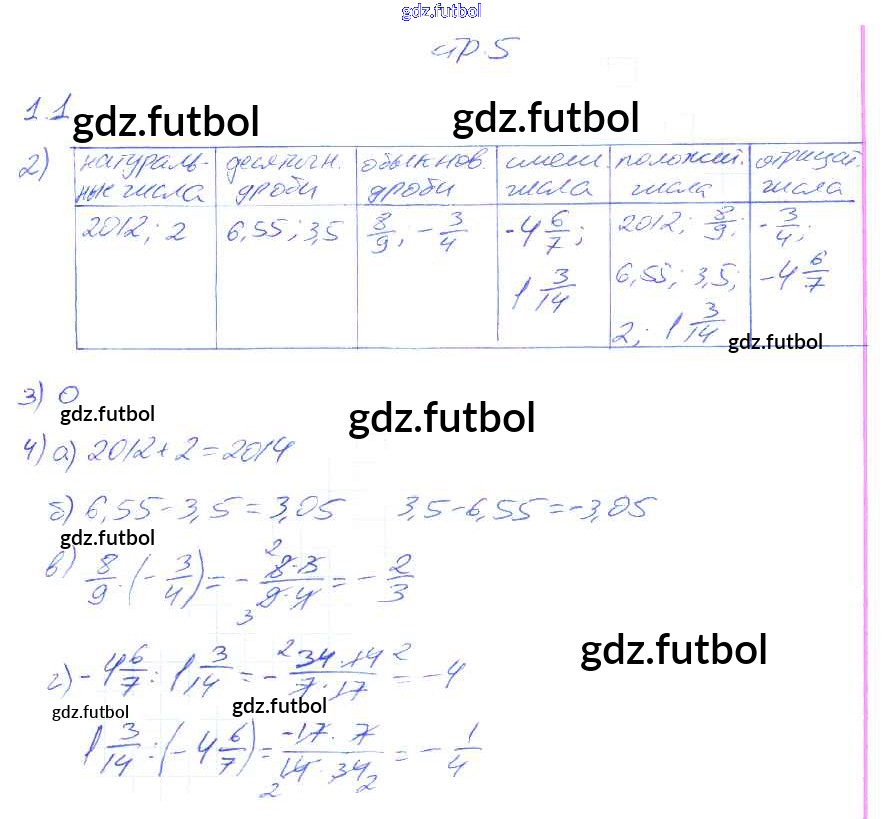 gdz.futbol
стр. 5
1.1 gdz.futbol gdz.futbol
2) натураль- десятичн. обыкнов. смеш. положит. отрицат.
ные числа дроби дроби числа числа числа
2012; 2 6,55; 3,5 8/9; -3/4 -4 6/7; 2012; 8/9; -3/4;
1 3/14 6,55; 3,5; -4 6/7
2; 1 3/14
gdz.futbol
3) 0
gdz.futbol gdz.futbol
4) а) 2012 + 2 = 2014
б) 6,55 - 3,5 = 3,05 3,5 - 6,55 = -3,05
gdz.futbol
в) 8/9 · (- 3/4) = - 8·3/9·4 = - 2/3
2 3
gdz.futbol
г) -4 6/7 : 1 3/14 = - 34·14/7·17 = -4
2 2
gdz.futbol gdz.futbol
1 3/14 : (-4 6/7) = -17·7/14·34 = - 1/4
2 2